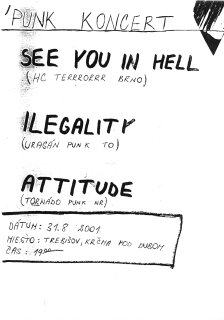 PUNK KONCERT
SEE YOU IN HELL
(HC TERRRORRR BRNO)
ILEGALITY
(URAGÁN PUNK TO)
ATTITUDE
(TORNÁDO PUNK NR)
DÁTUM: 31.8 2001
MIESTO: TREBIŠOV, KRČMA POD DUBOM
ČAS: 19⁰⁰